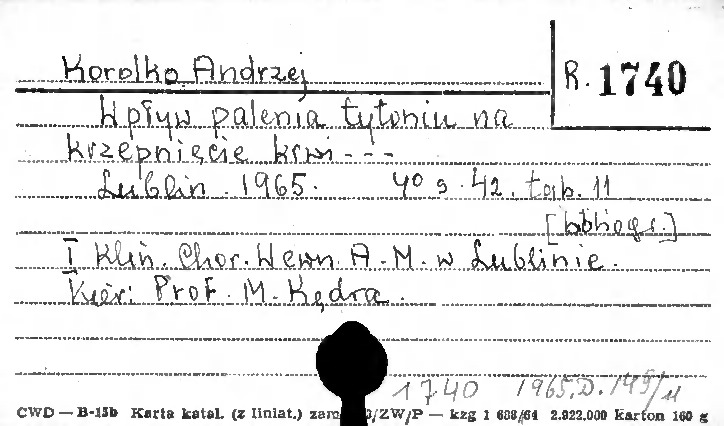 Korolko Andrzej
R. 1740
Wpływ palenia tytoniu na
krzepnięcie krwi - - -
Lublin. 1965. 4° s. 42. tab. 11
[bibliogr.]
I Klin. Chor. Wewn. A. M. w Lublinie.
Kier: Prof. M. Kędra.
1740 1965.D.149/11
CWD — B-15b Karta katal. (z liniat.) zam 3/ZW/P — kzg 1 688/64 2.922.000 karton 160 g